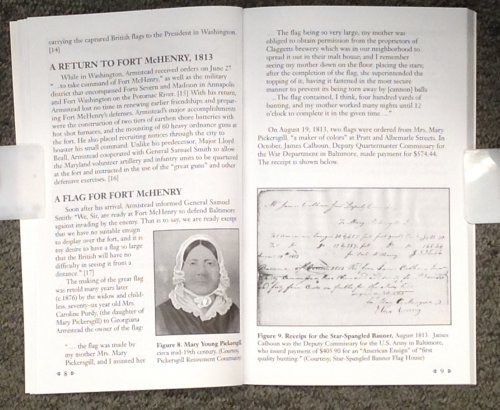 carrying the captured British flags to the President in Washington.
[14]
A RETURN TO FORT MCHENRY, 1813
While in Washington, Armistead received orders on June 27
"...to take command of Fort McHenry," as well as the military
district that encompassed Forts Severn and Madison in Annapolis
and Fort Washington on the Potomac River. [15] With his return,
Armistead lost no time in renewing earlier friendships and prepar-
ing Fort McHenry's defenses. Armistead's major accomplishments
were the construction of two tiers of earthen shore batteries with
hot shot furnaces, and the mounting of 60 heavy ordnance guns at
the fort. He also placed recruiting notices through the city to
bolster his small command. Unlike his predecessor, Major Lloyd
Beall, Armistead cooperated with General Samuel Smith to allow
the Maryland volunteer artillery and infantry units to be quartered
at the fort and instructed in the use of the "great guns" and other
defensive exercises. [16]
A FLAG FOR FORT MCHENRY
Soon after his arrival, Armistead informed General Samuel
Smith: "We, Sir, are ready at Fort McHenry to defend Baltimore
against invading by the enemy. That is to say, we are ready except
that we have no suitable ensign
to display over the fort, and it is
my desire to have a flag so large
that the British will have no
difficulty in seeing it from a
distance." [17]
The making of the great flag
was retold many years later
(c.1876) by the widow and child-
less, seventy-six year old Mrs.
Caroline Purdy, (the daughter of
Mary Pickersgill) to Georgiana
Armistead the owner of the flag:
"... the flag was made by
my mother Mrs. Mary
Pickersgill, and I assisted her
Figure 8: Mary Young Pickersgill
circa mid-19th century. (Courtesy
Pickersgill Retirement Community)
8
The flag being so very large, my mother was
obliged to obtain permission from the proprietors of
Claggetts brewery which was in our neighborhood to
spread it out in their malt house; and I remember
seeing my mother down on the floor placing the stars;
after the completion of the flag, she superintended the
topping of it, having it fastened in the most secure
manner to prevent its being torn away by [cannon] balls
...The flag contained, I think, four hundred yards of
bunting, and my mother worked many nights until 12
o'clock to complete it in the given time ..."
On August 19, 1813, two flags were ordered from Mrs. Mary
Pickersgill, "a maker of colors" at Pratt and Albemarle Streets. In
October, James Calhoun, Deputy Quartermaster Commissary for
the War Department in Baltimore, made payment for $574.44.
The receipt is shown below.
Figure 9. Receipts for the Star-Spangled Banner, August 1813. James
Calhoun was the Deputy Commissary for the U.S. Army in Baltimore,
who issued payment of $405.90 for an "American Ensign" of "first
quality bunting." (Courtesy, Star-Spangled Banner Flag House)
9